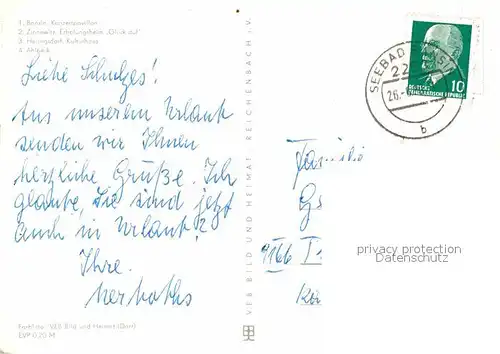 1. Bansin, Konzertpavillon
2. Zinnowitz, Erholungsheim „Glück auf"
3. Heringsdorf, Kulturhaus
4. Ahlbeck
Liebe Schulzes!
Aus unserem Urlaub
senden wir Ihnen
herzliche Grüße. Ich
glaube, Sie sind jetzt
auch in Urlaub?
Ihre
VEB Bild und Heimat (Dörr)
EVP 0,20 M
VEB BILD UND HEIMAT REICHENBACH i. V.
SEEBAD
22
26.
b
10
DEUTSCHE
DEMOKRATISCHE REPUBLIK
Familie
9166
privacy protection
Datenschutz